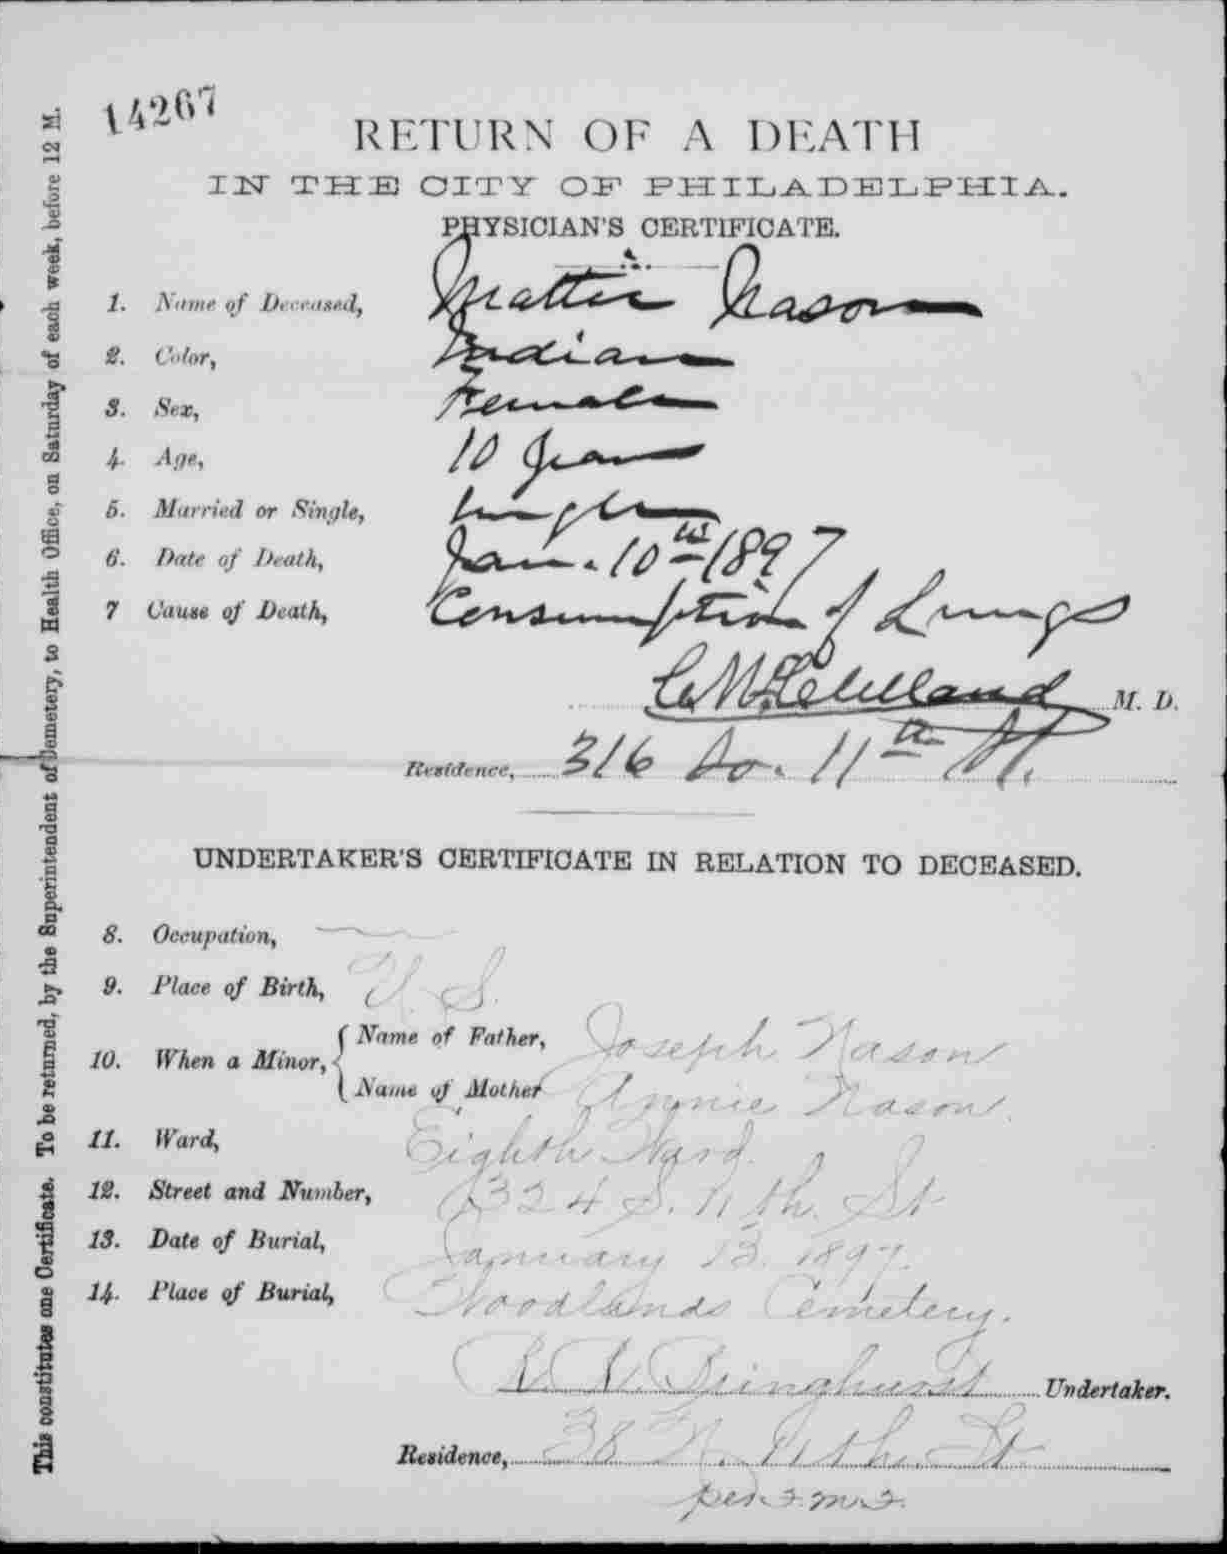 14267
RETURN OF A DEATH
IN THE CITY OF PHILADELPHIA.
PHYSICIAN'S CERTIFICATE.
1. Name of Deceased, Mattie Nason
2. Color, Indian
3. Sex, Female
4. Age, 10 years
5. Married or Single, Single
6. Date of Death, Jan. 10th 1897
7 Cause of Death, Consumption of Lungs
M. D.
Residence, 316 So. 11th St.
UNDERTAKER'S CERTIFICATE IN RELATION TO DECEASED.
8. Occupation,
9. Place of Birth, U. S.
10. When a Minor, { Name of Father, Joseph Nason
Name of Mother Annie Nason.
11. Ward, Eighth Ward.
12. Street and Number, 324 S. 11th. St
13. Date of Burial, January 13. 1897.
14. Place of Burial, Woodlands Cemetery.
R. R. Bringhurst Undertaker.
Residence, 38 N. 11th. St
This constitutes one Certificate. To be returned, by the Superintendent of Cemetery, to Health Office, on Saturday of each week, before 12 M.